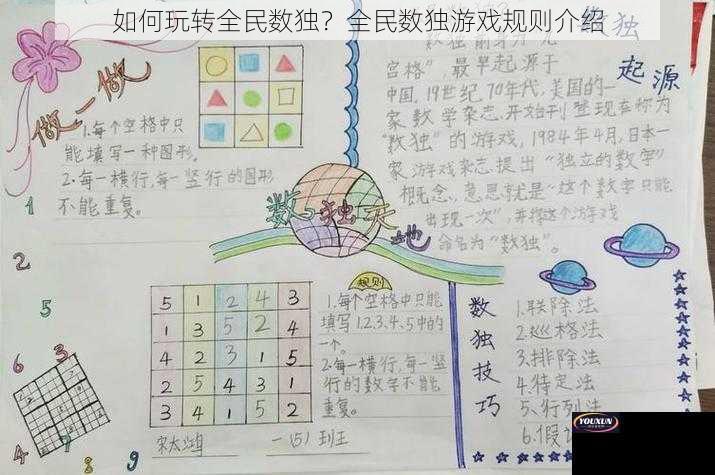 如何玩转全民数独？全民数独游戏规则介绍
做一做
1.每个空格中只
能填写一种图形。
2.每一横行,每一竖行的图形
不能重复。
数独
起源
宫格”,最早起源于
中国,19世纪70年代,美国的一
家数学杂志,开始刊登现在称为
“数独”的游戏,1984年4月,日本一
家游戏杂志提出“独立的数字”
相元念、意思就是“这个数字只能
出现一次”,并将这个游戏
命名为“数独”。
数独天地
1
2
5
6
3
4
7
8
9
5 1 2 4 3
1 3 5 2 4
4 2 3 1 5
2 5 4 3 1
3 4 1 5 2
宋太鸿 一(5)班王
规则
1.每个空格中只能
填写1.2.3.4.5中的
一个。
2.每一横行,每一竖
行的数字不能
重复。
数独技巧
1.联除法
2.巡格法
3.排除法
4.待定法
5.行列法
6.假
YOUXUN